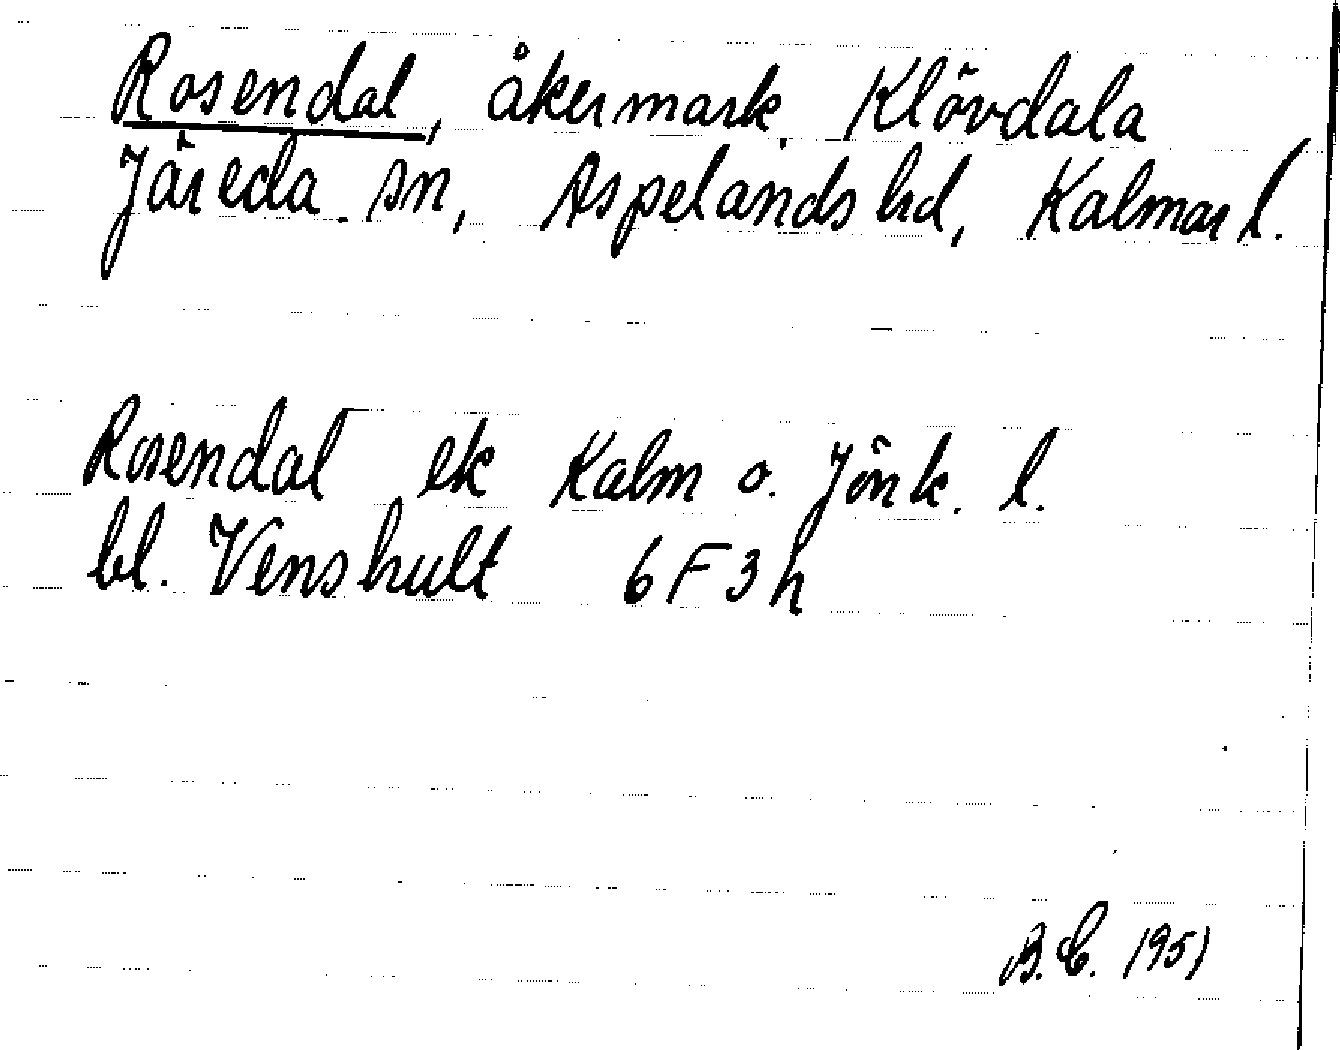 Rosendal, åkermark, Klövdala
Järeda sn, Aspelands hd, Kalmar l.
Rosendal ek Kalm o. Jönk. l.
bl. Venshult 6F3h
B.E. 1951